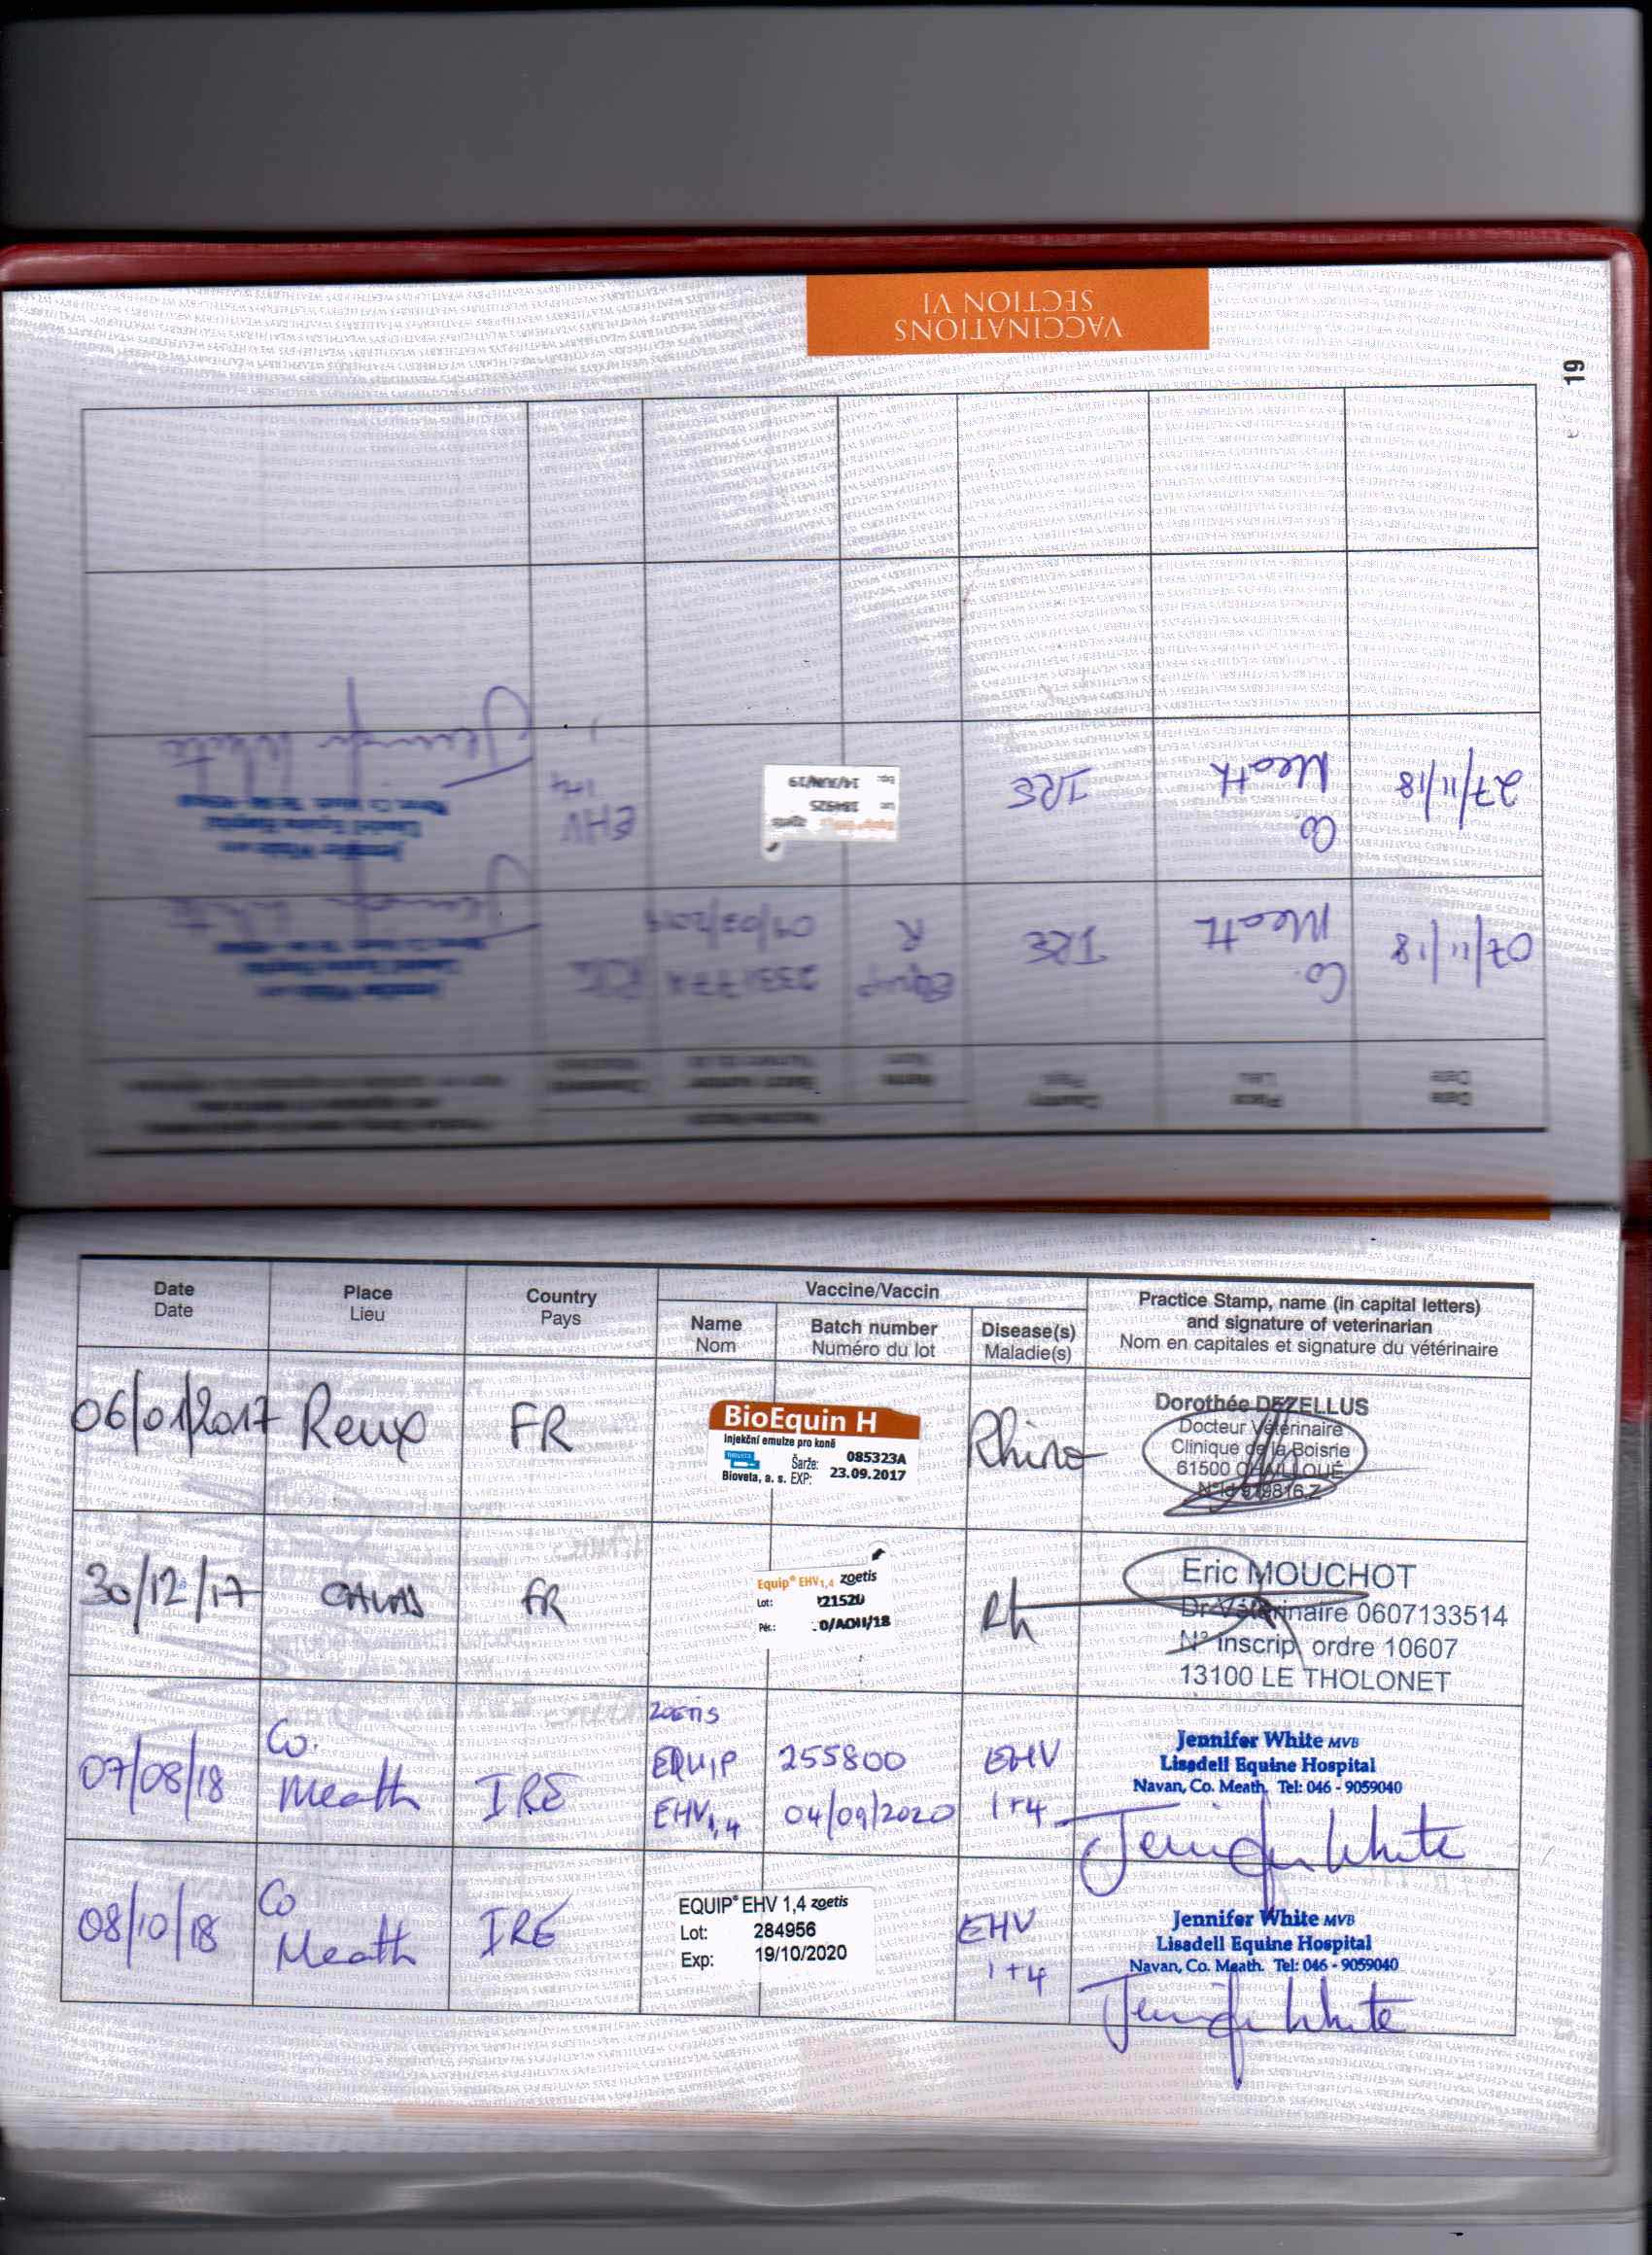 VACCINATIONS
SECTION VI
19
Date Date
Place Lieu
Country Pays
07/11/18
Co. Meath
IRE
Equip R
Jennifer White
27/11/18
Co. Meath
IRE
184925
14/JUN/19
EHV 1+4
Jennifer White
Date Date
Place Lieu
Country Pays
Vaccine/Vaccin
Name Nom
Batch number Numéro du lot
Disease(s) Maladie(s)
Practice Stamp, name (in capital letters)
and signature of veterinarian
Nom en capitales et signature du vétérinaire
06/01/2017
Reux
FR
BioEquin H
Injekční emulze pro koně
Šarže: 085323A
Bioveta, a. s. EXP: 23.09.2017
Rhino
Dorothée DEZELLUS
Docteur Vétérinaire
Clinique de la Boisrie
61500
30/12/17
FR
Equip® EHV1,4 zoetis
Lot: 21520
Pér.: 0/AOU/18
Rh
Eric MOUCHOT
Dr Vétérinaire 0607133514
N° inscrip ordre 10607
13100 LE THOLONET
07/08/18
Co. Meath
IRE
ZOETIS
EQUIP
EHV1,4
255800
04/09/2020
EHV
1+4
Jennifer White MVB
Lisadell Equine Hospital
Navan, Co. Meath. Tel: 046 - 9059040
Jennifer White
08/10/18
Co Meath
IRE
EQUIP® EHV 1,4 zoetis
Lot: 284956
Exp: 19/10/2020
EHV
1+4
Jennifer White MVB
Lisadell Equine Hospital
Navan, Co. Meath. Tel: 046 - 9059040
Jennifer White